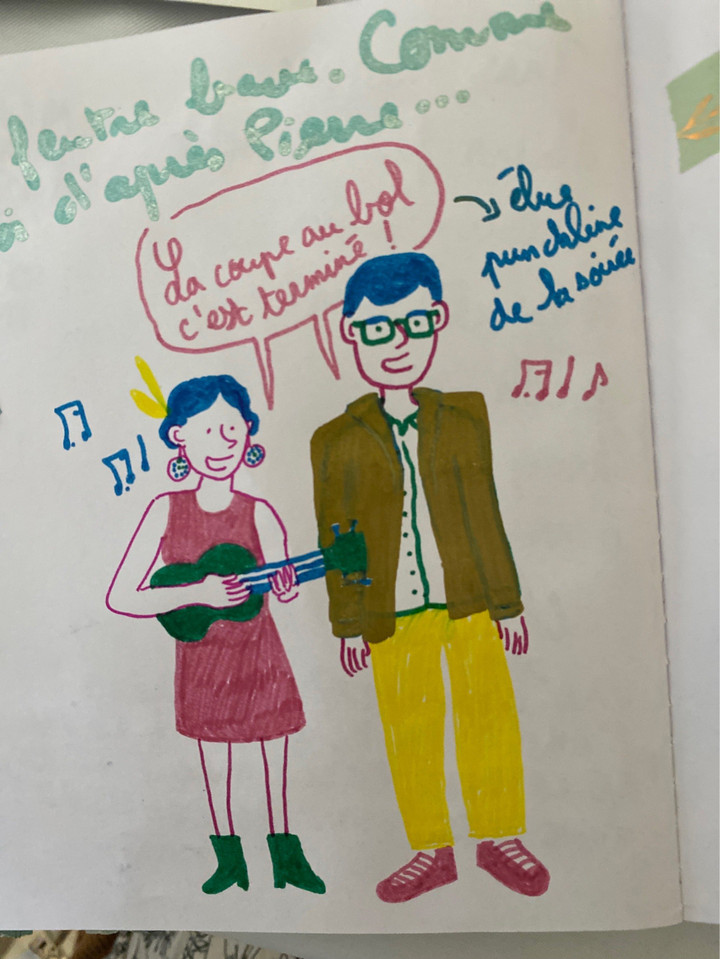 beau. Comme
d'après Pierre...
La coupe au bol
c'est terminé !
élue
punchline
de la soirée